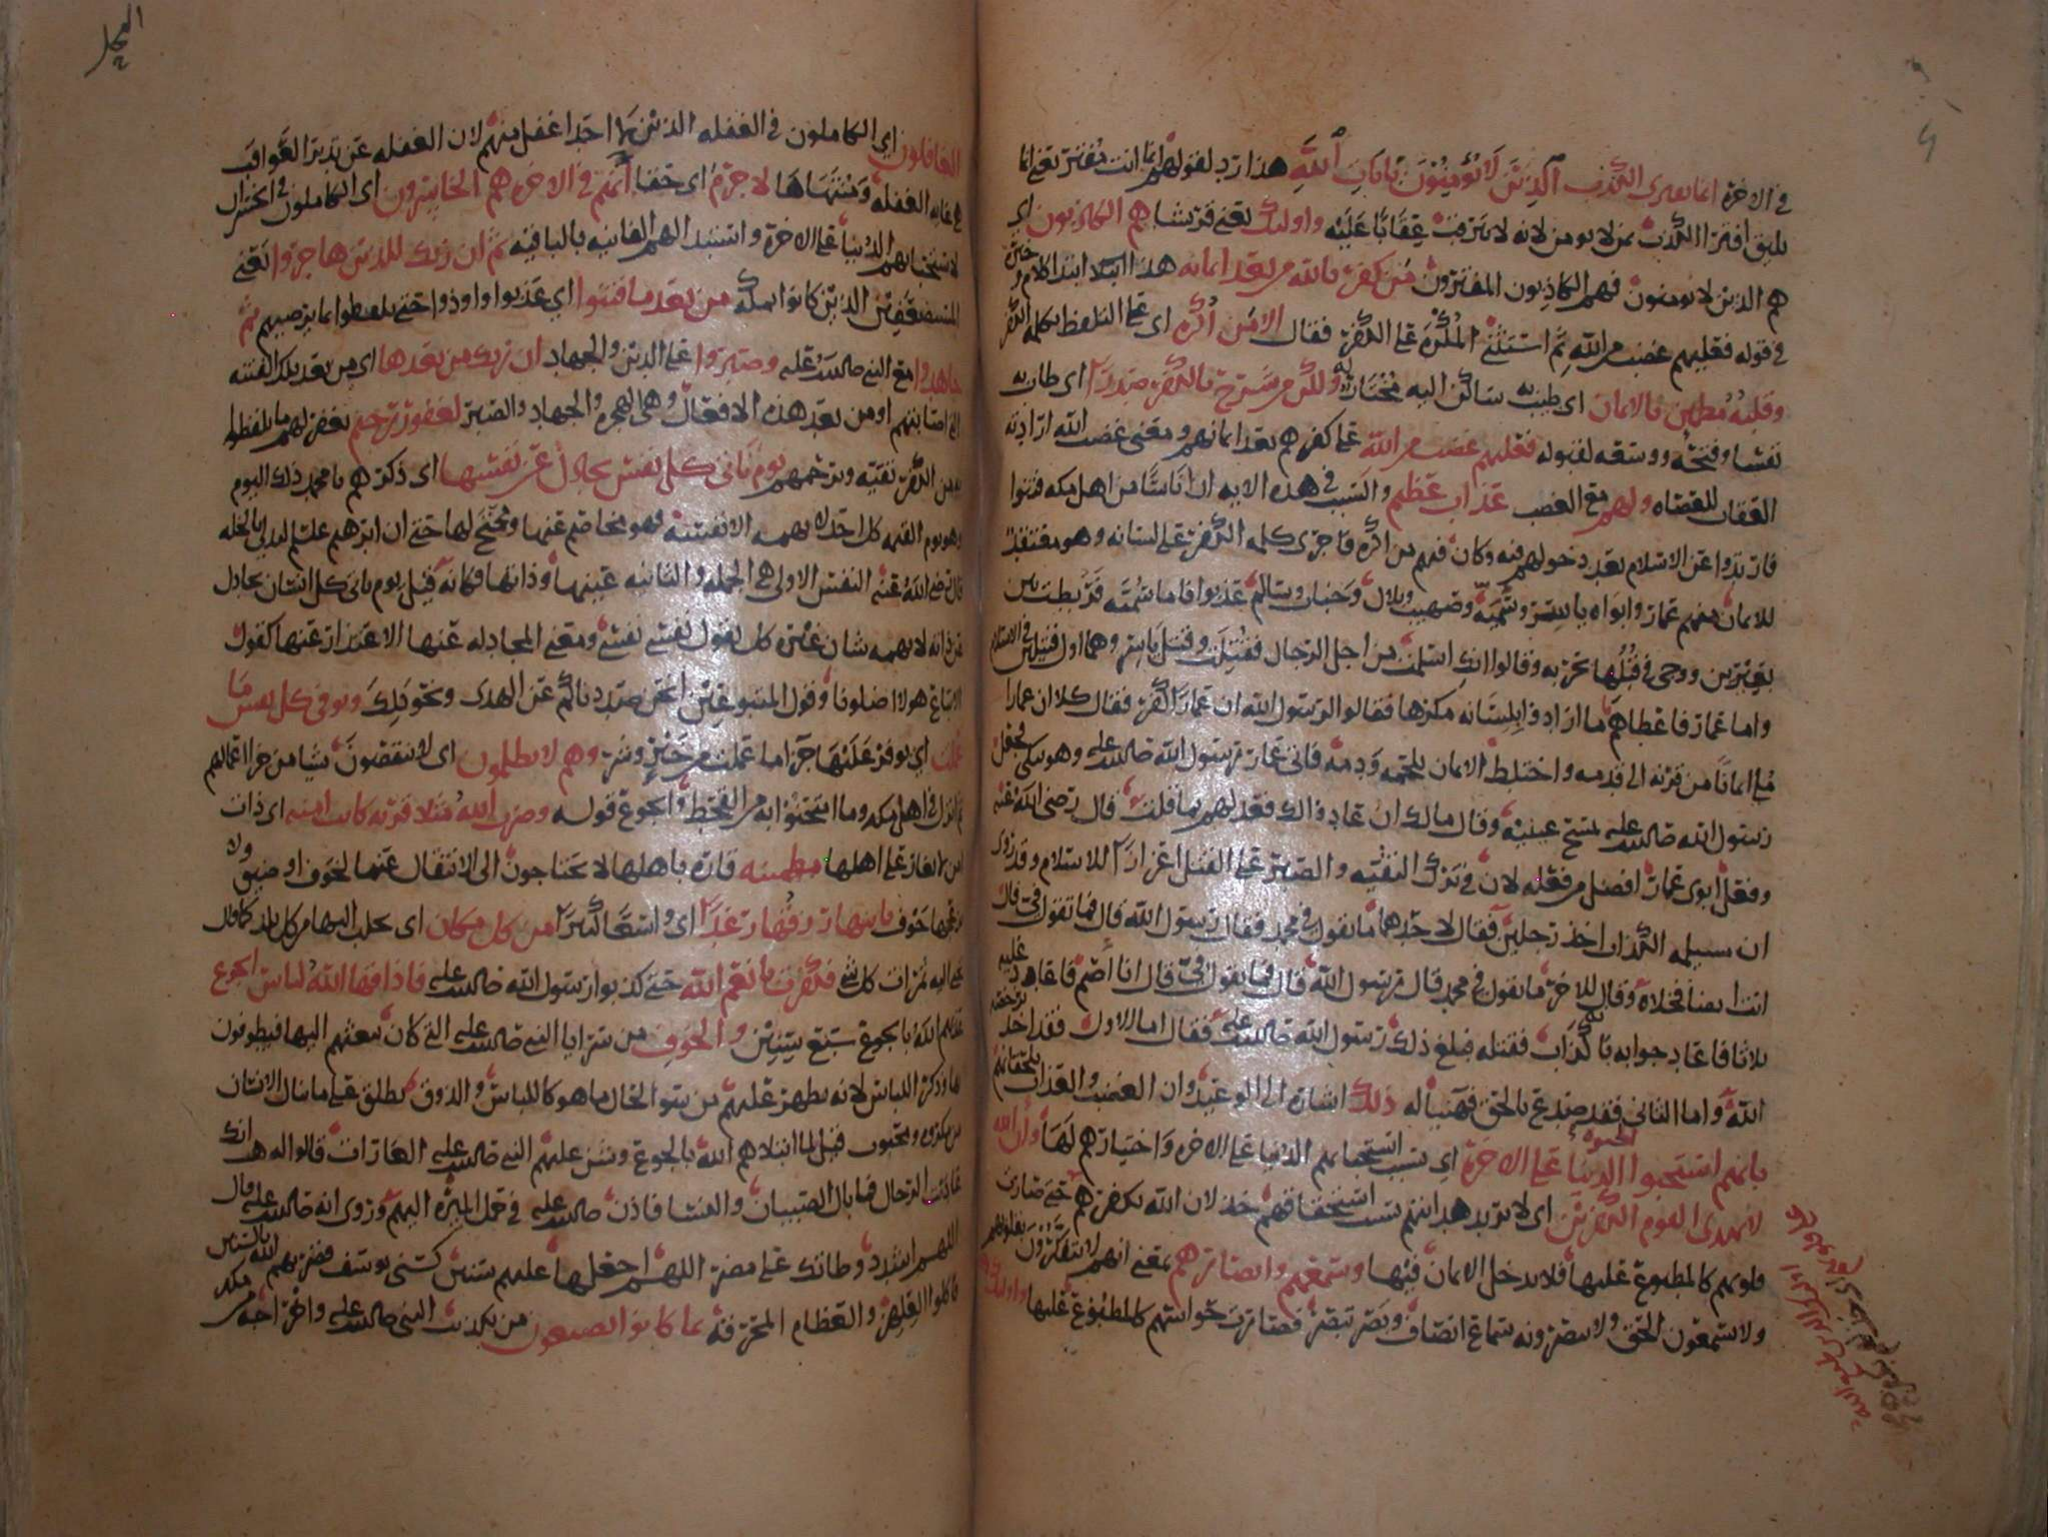 في الاخرة انما يفترى الكذب الذين لا يؤمنون بايات الله هذا رد لقولهم انما انت مفتر يعني انما
يليق افترا الكذب بمن لا يومن لانه لا يترقب عقابا عليه واوليك يعني قريشا هم الكاذبون اي
هم الذين لا يومنون فهم الكاذبون المفترون من كفر بالله من بعد ايمانه هذا ابتدا كلام
في قوله فعليهم غضب من الله ثم استثنى المكره على الكفر فقال الا من اكره اي على التلفظ بكلمه الكفر
وقلبه مطمين بالايمان اي طيب به ساكن اليه مختار له ولكن من شرح بالكفر صدرا اي طاب به
نفسا وفتحه ووسعه لقبوله فعليهم غضب من الله على كفرهم بعد ايمانهم ومعنى غضب الله ارادته
العقاب للعصاه ولهم مع الغضب عذاب عظيم والسبب في هذه الايه ان اناسا من اهل مكه فتنوا
فارتدوا عن الاسلام بعد دخولهم فيه وكان فيهم من اكره فاجرى كلمه الكفر على لسانه وهو معتقد
للايمان منهم عمار وابواه ياسر وسميه وصهيب وبلال وخباب وسالم عذبوا فاما سميه فربطت بين
بعيرين ووجي في قبلها بحربه وقالوا انك اسلمت من اجل الرجال فقتلت وقتل ياسر وهما اول قتيلين في الاسلام
واما عمار فاعطاهم ما ارادوا بلسانه مكرها فقالوا لرسول الله ان عمارا كفر فقال كلا ان عمارا
ملي ايمانا من قرنه الى قدمه واختلط الايمان بلحمه ودمه فاتى عمار رسول الله صلى الله عليه وهو يبكي فجعل
رسول الله صلى الله عليه يمسح عينيه وقال مالك ان عادوا لك فعد لهم بما قلت قال رضي الله عنه
وفعل ابوي عمار افضل من فعله لان في ترك التقيه والصبر على القتل اعزازا للاسلام وقد روي
ان مسيلمه الكذاب اخذ رجلين فقال لاحدهما ما تقول في محمد فقال رسول الله قال فما تقول في قال
انت ايضا فخلاه وقال للاخر ما تقول في محمد قال رسول الله قال فما تقول في قال انا اصم فاعاد عليه
ثلاثا فاعاد جوابه فقتله فبلغ ذلك رسول الله صلى الله عليه فقال اما الاول فقد اخذ برخصه
الله واما الثاني فقد صدع بالحق فهنيا له ذلك اشاره الى الوعيد وان الغضب والعذاب يلحقانهم
بانهم استحبوا الحيوه الدنيا على الاخرة اي بسبب استحبابهم الدنيا على الاخره واختيارهم لها وان الله
لا يهدي القوم الكفرين اي لا يريد هدايتهم بسبب استحقاقهم خذلان الله بكفرهم حتى صارت
قلوبهم كالمطبوع عليها فلا يدخل الايمان فيها وسمعهم وابصارهم بمعنى انهم لا يتفكرون بقلوبهم
ولا يسمعون الحق ولا يبصرونه سماع انصاف وبصر تبصر فصارت حواسهم كالمطبوع عليها واوليك هم
الغافلون اي الكاملون في الغفله الذين لا احد اغفل منهم لان الغفله عن تدبر العواقب
هي غايه الغفله ومنتهاها لا جرم اي حقا انهم في الاخره هم الخاسرون اي الكاملون في الخسران
لاستحبابهم الدنيا على الاخرة واستبدالهم الفانيه بالباقيه ثم ان ربك للذين هاجروا يعني
المستضعفين الذين كانوا بمكه من بعد ما فتنوا اي عذبوا واوذوا حتى تلفظوا بما يرضيهم ثم
جاهدوا مع النبي صلى الله عليه وصبروا على الدين والجهاد ان ربك من بعدها اي من بعد تلك الفتنه
التي اصابتهم او من بعد هذه الافعال وهي الهجره والجهاد والصبر لغفور رحيم يغفر لهم ما تلفظوا
به من الكفر تقيه ويرحمهم يوم تاتي كل نفس تجادل عن نفسها اي ذكرهم يا محمد ذلك اليوم
وهو يوم القيمه كل احد لا يهمه الا نفسه فهو يخاصم عنها ويحتج لها حتى ان ابرهيم عليه السلم
قال رضي الله عنه النفس الاولى هي الجمله والثانيه عينها وذاتها فكانه قيل يوم ياتي كل انسان يجادل
عن ذاته لا يهمه شان غيره كل يقول نفسي نفسي ومعنى المجادله عنها الاعتذار عنها كقول
الاتباع هولا اضلونا وقول المتبوعين انحن صددناكم عن الهدى ونحو ذلك وتوفى كل نفس ما
عملت اي يوفر عليها جزا ما عملت من خير وشر وهم لا يظلمون اي لا ينقصون شيا من جزا اعمالهم
ثم نزل في اهل مكه وما امتحنوا به من القحط والجوع قوله وضرب الله مثلا قرية كانت امنه اي ذات
امن لا يغار على اهلها مطمينه قاره باهلها لا يحتاجون الى الانتقال عنها لخوف او ضيق ولا
يزعجها خوف ياتيها رزقها رغدا اي واسعا كثيرا من كل مكان اي يجلب اليها من كل بلد كما قال
يجبى اليه ثمرات كل شي فكفرت بانعم الله حتى كذبوا رسول الله صلى الله عليه فاذاقها الله لباس الجوع
عذبهم الله بالجوع سبع سنين والخوف من سرايا النبي صلى الله عليه التي كان يبعثهم اليها فيطوفون
بها وذكر اللباس لانه يظهر عليهم من سو الحال ما هو كاللباس والذوق يطلق على ما ينال الانسان
من مكروه ومحبوب قيل لما ابتلاهم الله بالجوع وشن عليهم النبي صلى الله عليه الغارات قالوا له هب انك
عاديت الرجال فما بال الصبيان والنسا فاذن صلى الله عليه في حمل الميره اليهم وروي انه صلى الله عليه قال
اللهم اشدد وطاتك على مضر اللهم اجعلها عليهم سنين كسني يوسف فضربهم الله بالسنين
فاكلوا العلهز والعظام المحرقه بما كانوا يصنعون من تكذيب النبي صلى الله عليه واخراجه من مكه